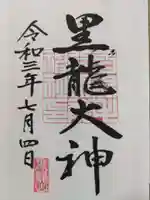 黒龍大神
令和三年七月四日